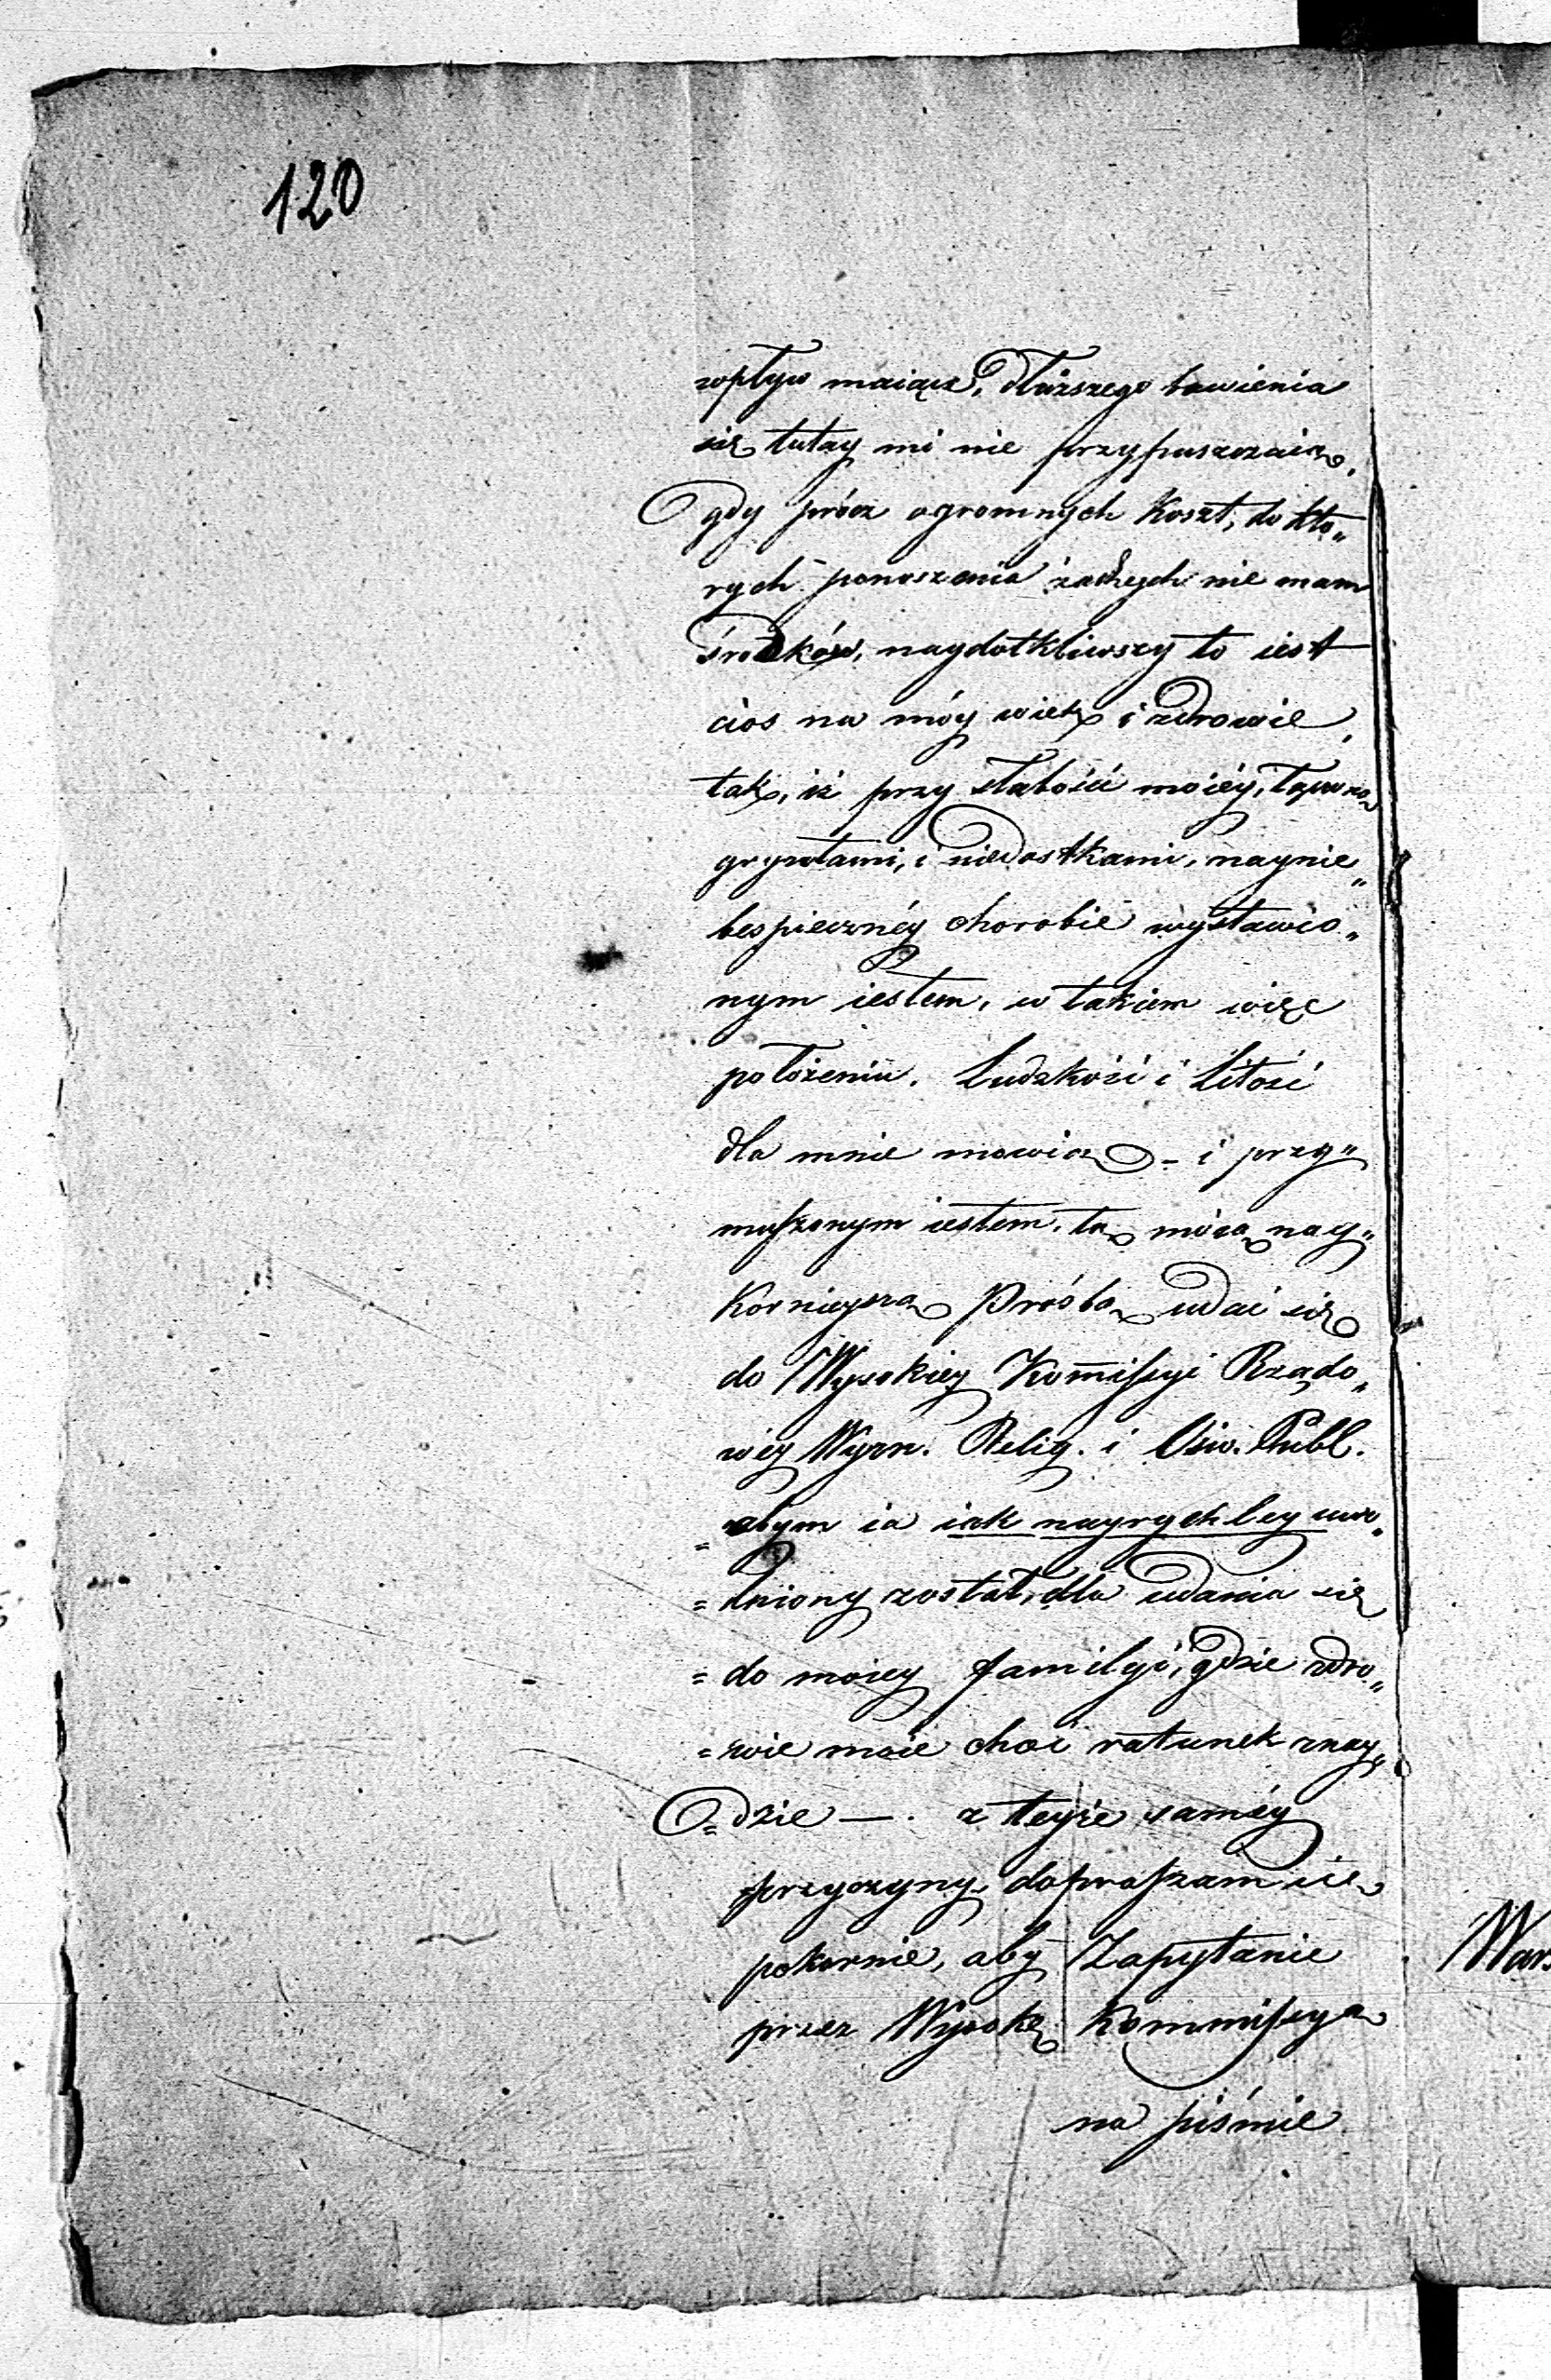 120
wpływ maiące, dłuższego bawienia
się tutay mi nie przypuszczaią,
gdy prócz ogromnych Koszt, do któ„
rych ponoszenia żadnych nie mam
środków, naydotkliwszy to iest
cios na móy wiek i zdrowie,
tak, iż przy słabości moiéy,
gryzotami, i niedostkami, naynie„
bespiecznéy chorobie wystawio„
nym iestem, w takiem więc
położeniu. Ludzkość i Litość
dla mnie mowią - i przy„
muszonym iestem, tą moią nay„
Kornieyszą Prośbą udać się
do Wysokiey Kom̄issyi Rządo„
wéy Wyzn. Relig. i Ośw. Publ.
= abym ia iak nayrychley uwo„
= lniony został, dla udania się
= do moiey familyi, gdzie zdro„
= wie moie choć ratunek znay„
= dzie —. z teyże saméy
przyczyny, dopraszam się
pokornie, aby Zapytanie
przez Wysoką Kommissyą
na piśmie
Wars